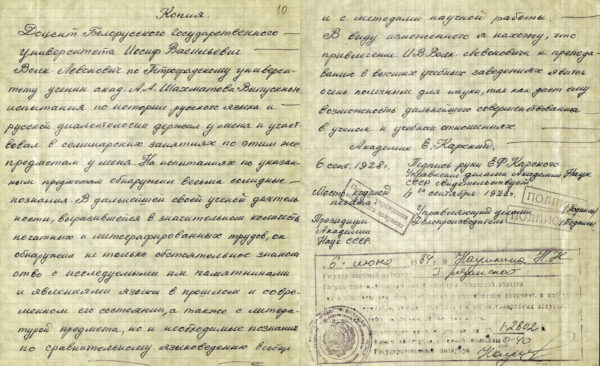 Копия.
10
Доцент Белорусского Государственного
университета Иосиф Васильевич
Волк Левонович по Петроградскому универси-
тету ученик акад. А.А. Шахматова. Выпускные
испытания по истории русского языка и
русской диалектологии держал у меня и участ
вовал в семинарских занятиях по этим же
предметам у меня. На испытаниях по указан-
ным предметам обнаружил весьма солидные
познания. В дальнейшем своей ученой деятель
ности, выразившейся в значительном количестве
печатных и литографированных трудов, он
обнаружил не только обстоятельное знаком
ство с исследуемыми им памятниками
и явлениями языка в прошлом и совре-
менном его состоянии, а также с литера-
турой предмета, но и необходимые познания
по сравнительному языковедению вообще
и с методами научной работы.
В виду изложенного я нахожу, что
привлечение И.В. Волк-Левоновича к препода-
ванию в высших учебных заведениях явится
очень полезным для науки, так как даст ему
возможность дальнейшего совершенствования
в ученом и учебном отношениях.
Академик Е. Карский.
6 сент. 1928 г. Подпись руки Е.Ф. Карского
Управление делами Академии Наук
СССР свидетельствует
4 го сентября 1928 г.
Место круглой
печати
Управляющий делами (подпись)
Делопроизводитель (подпись)
Президиум
Академии
Наук СССР
6 июня
Государственный нотариус
1-2602
0-40